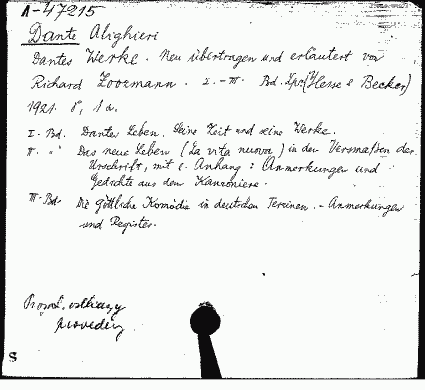 A-47215
Dante Alighieri
Dantes Werke. Neu übertragen und erläutert von
Richard Zoozmann. I.-III. Bd. Lpz. (Hesse & Becker)
1921. 8°, 1 a.
I. Bd. Dantes Leben. Seine Zeit und seine Werke.
II. " Das neue Leben (La vita nuova) in den Versmaßen der
Urschrift, mit e. Anhang: Anmerkungen und
Gedichte aus dem Kanzoniere.
III. Bd. Die göttliche Komödie in deutschen Terzinen. - Anmerkungen
und Register.
provedeny
S